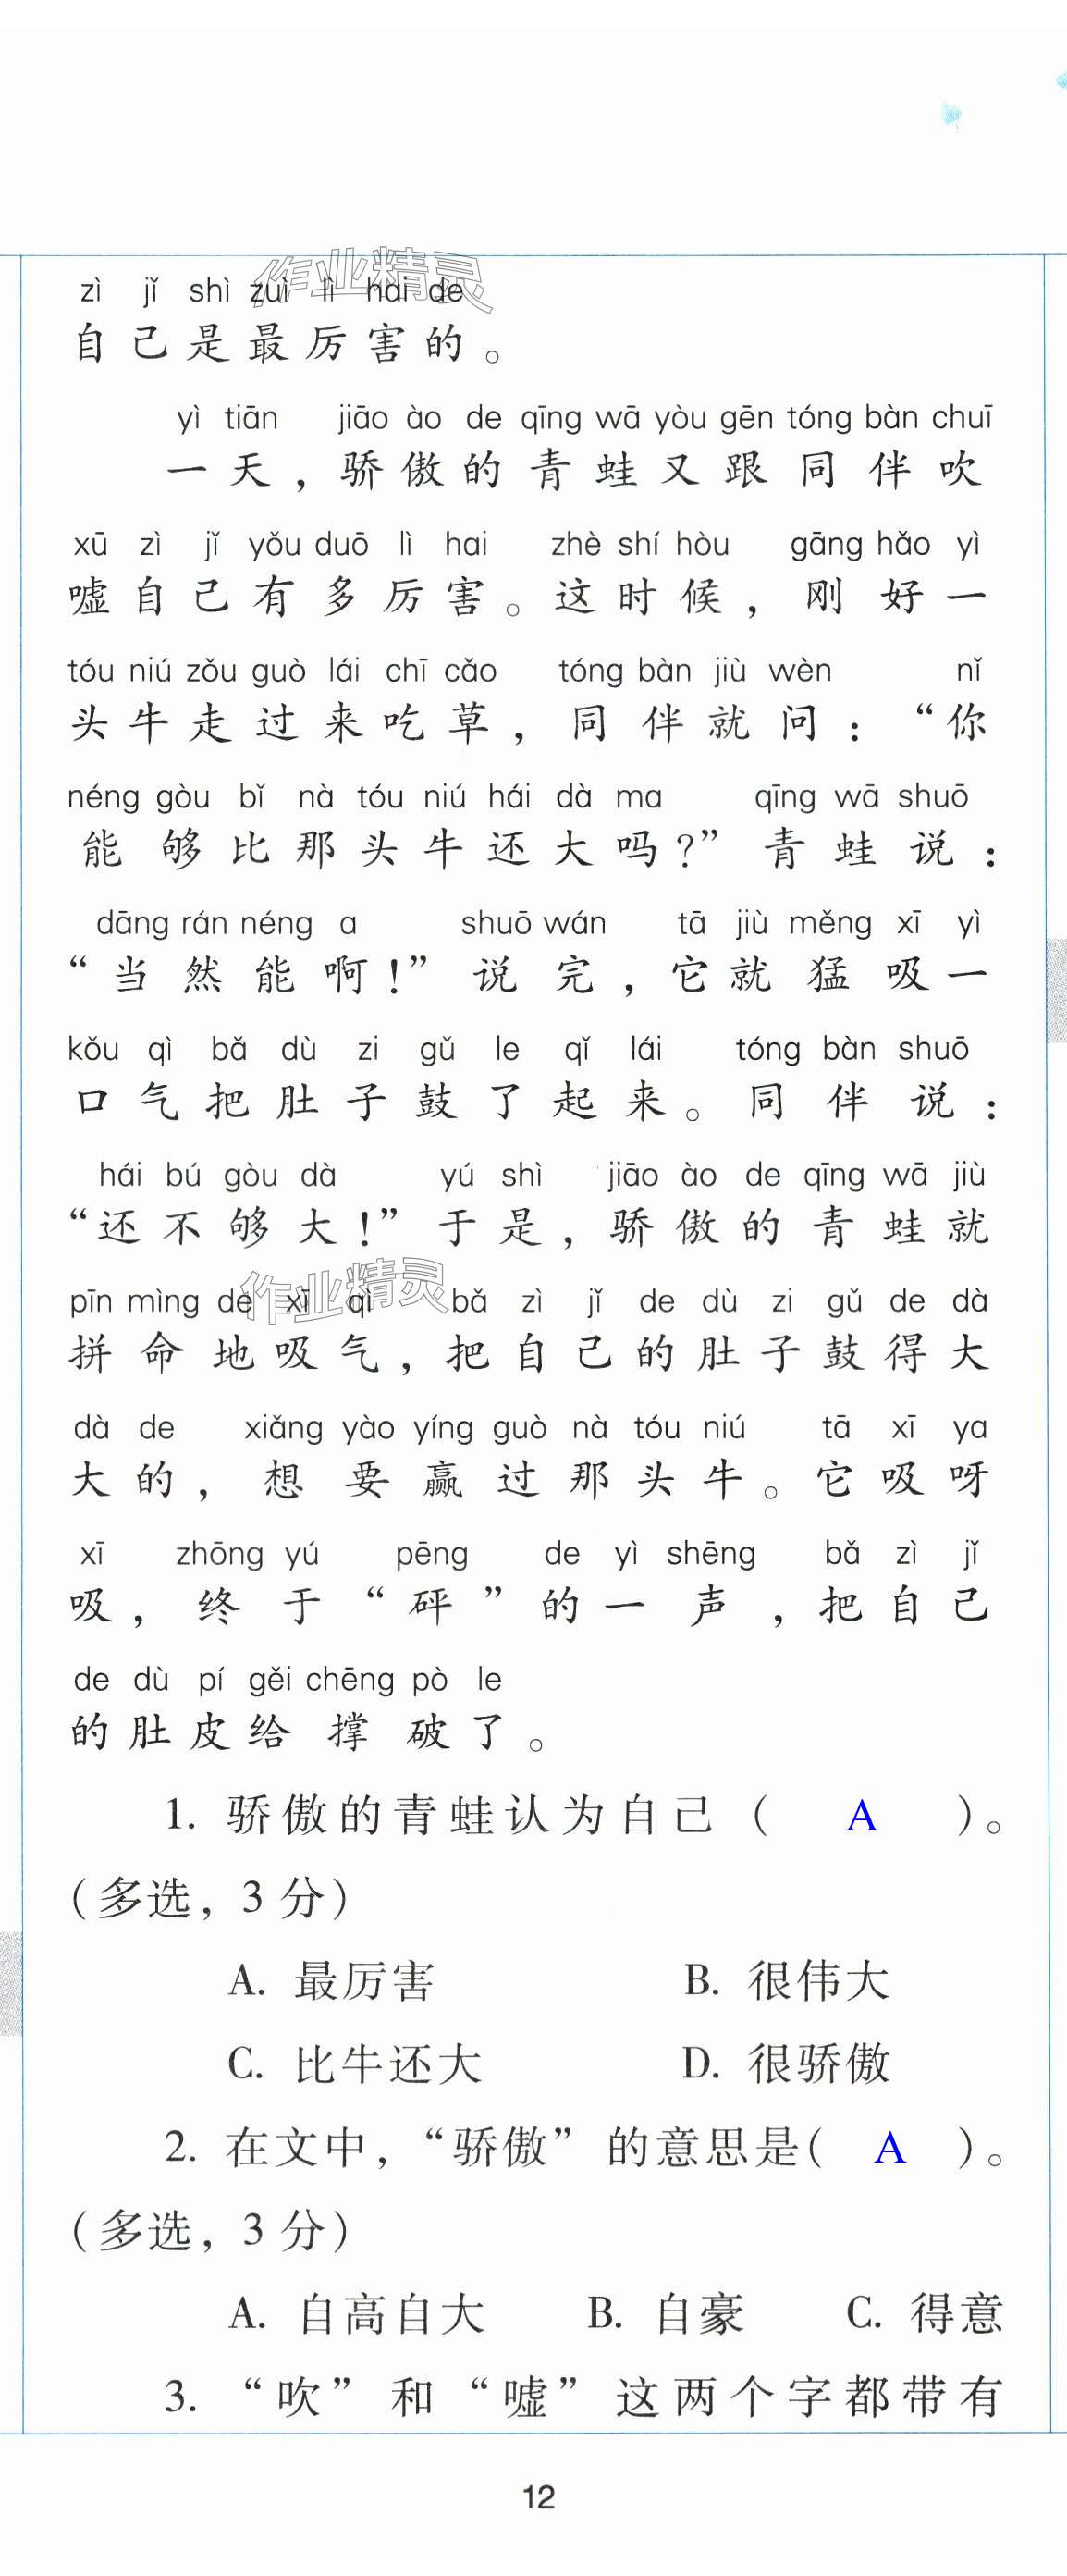 作业精灵
zì jǐ shì zuì lì hai de
自己是最厉害的。
yì tiān jiāo ào de qīng wā yòu gēn tóng bàn chuī
一天，骄傲的青蛙又跟同伴吹
xū zì jǐ yǒu duō lì hai zhè shí hòu gāng hǎo yì
嘘自己有多厉害。这时候，刚好一
tóu niú zǒu guò lái chī cǎo tóng bàn jiù wèn nǐ
头牛走过来吃草，同伴就问：“你
néng gòu bǐ nà tóu niú hái dà ma qīng wā shuō
能够比那头牛还大吗？”青蛙说：
dāng rán néng a shuō wán tā jiù měng xī yì
“当然能啊！”说完，它就猛吸一
kǒu qì bǎ dù zi gǔ le qǐ lái tóng bàn shuō
口气把肚子鼓了起来。同伴说：
hái bú gòu dà yú shì jiāo ào de qīng wā jiù
“还不够大！”于是，骄傲的青蛙就
作业精灵
pīn mìng de xī qì bǎ zì jǐ de dù zi gǔ de dà
拼命地吸气，把自己的肚子鼓得大
dà de xiǎng yào yíng guò nà tóu niú tā xī ya
大的，想要赢过那头牛。它吸呀
xī zhōng yú pēng de yì shēng bǎ zì jǐ
吸，终于“砰”的一声，把自己
de dù pí gěi chēng pò le
的肚皮给撑破了。
1. 骄傲的青蛙认为自己（ A ）。
（多选，3分）
A. 最厉害 B. 很伟大
C. 比牛还大 D. 很骄傲
2. 在文中，“骄傲”的意思是（ A ）。
（多选，3分）
A. 自高自大 B. 自豪 C. 得意
3. “吹”和“嘘”这两个字都带有
12